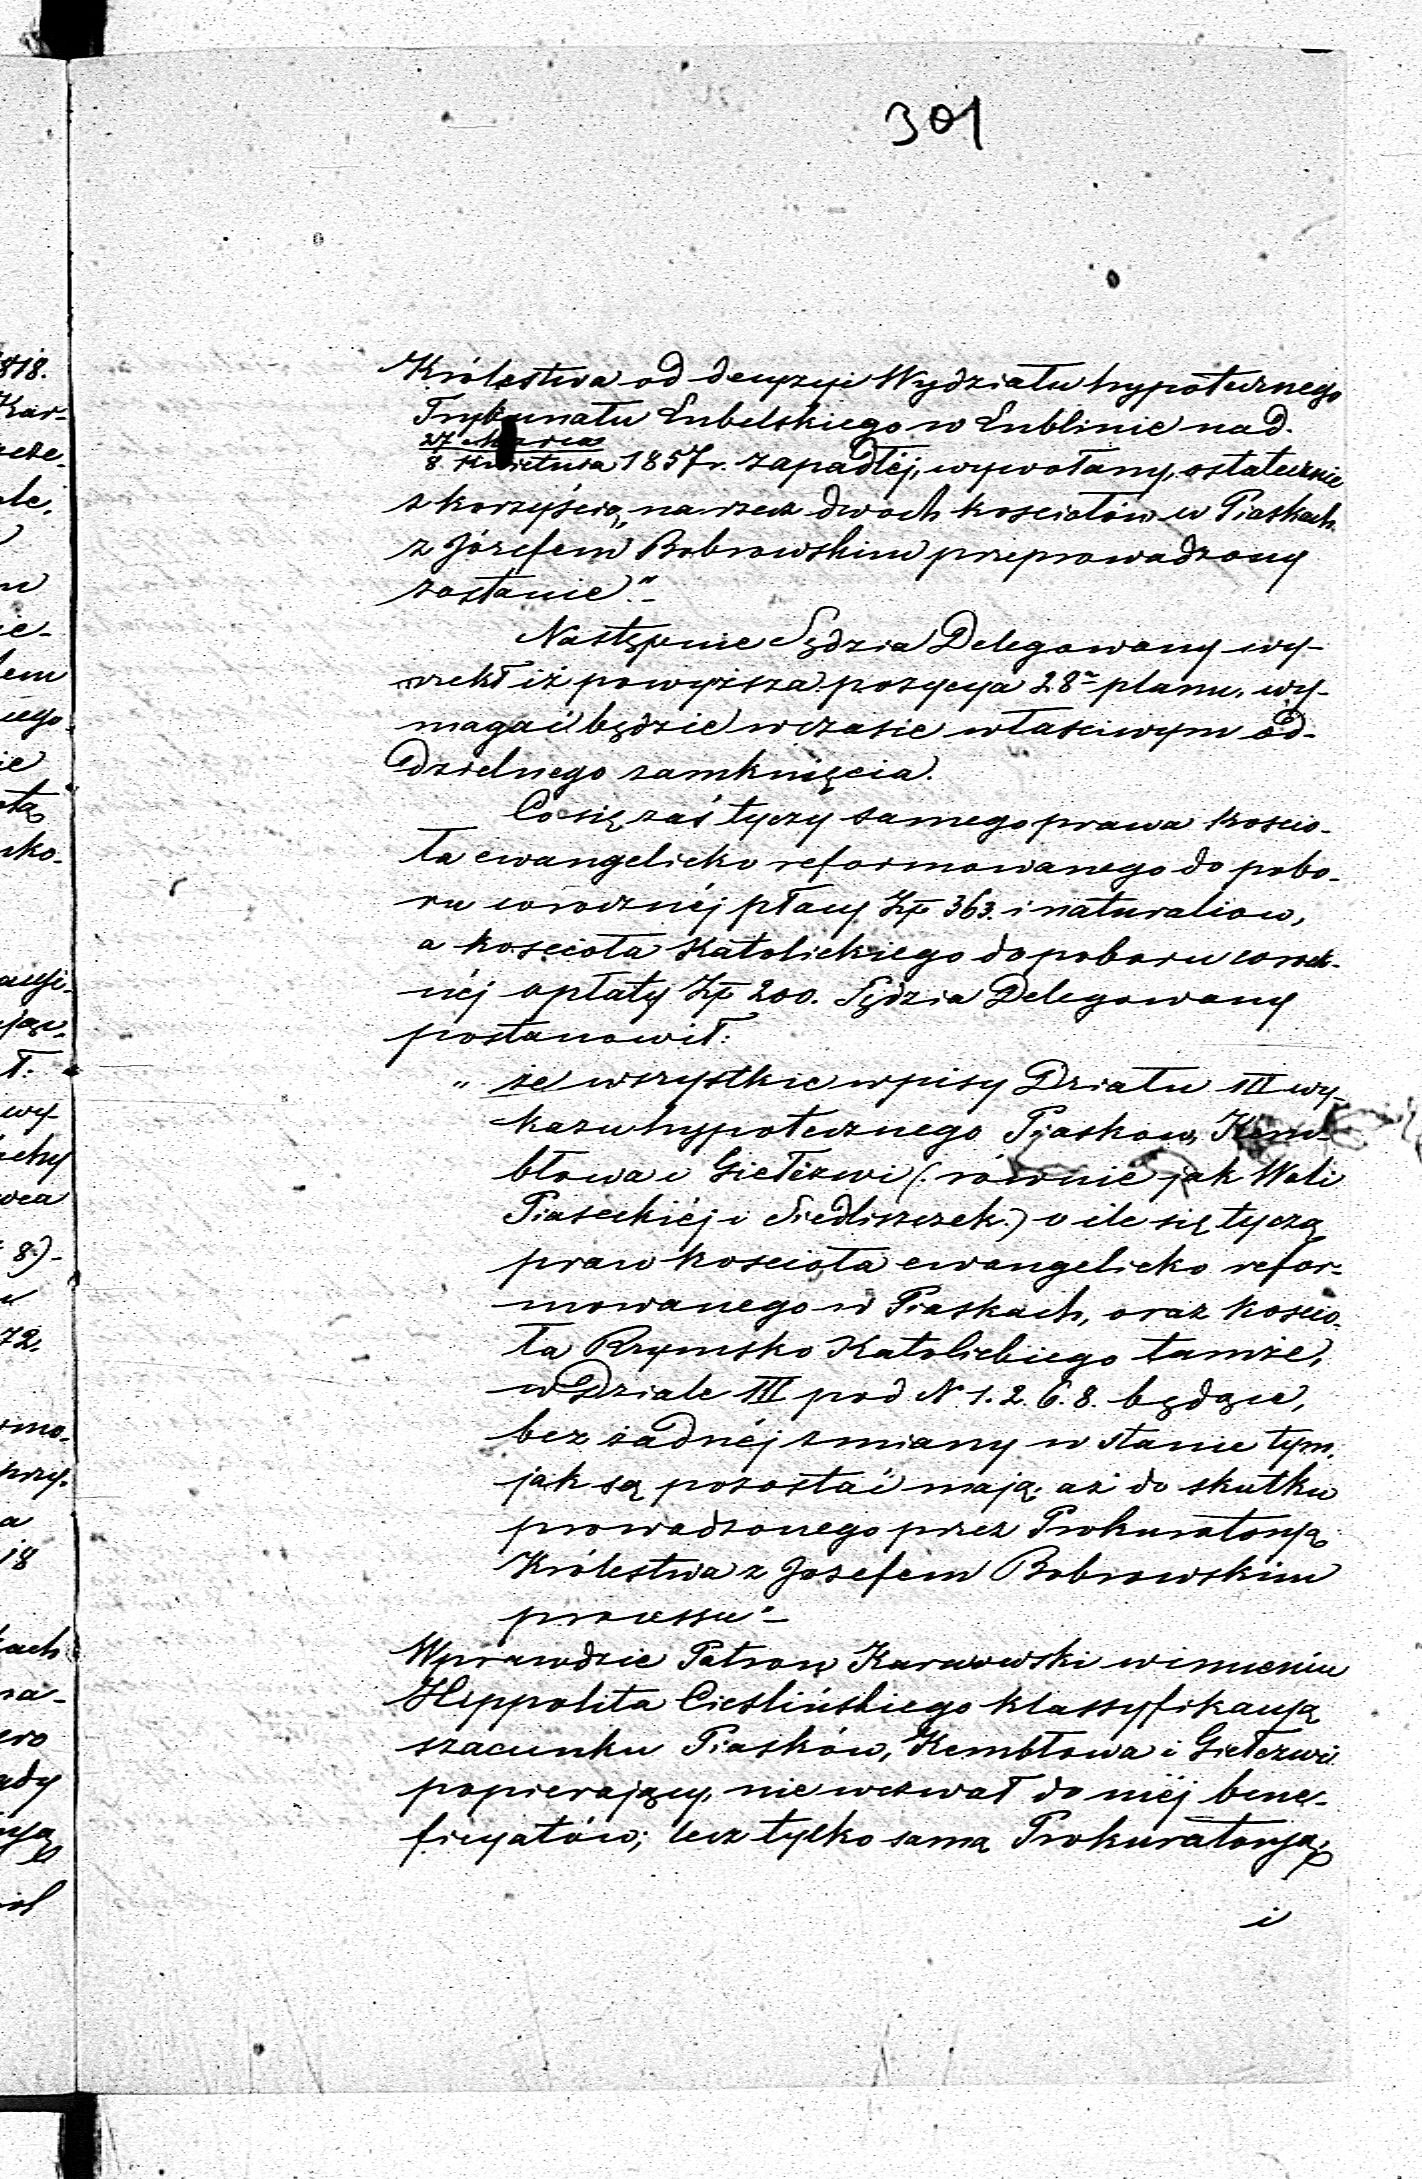 301
Królestwa od decyzyi Wydziału hypotecznego
Trybunału Lubelskiego w Lublinie na d.
27 Marca
8 Kwietnia 1857 r. zapadłéj, wywołany, ostatecznie
z korzyścią na rzecz dwoch kosciołów w Piaskach
z Józefem Bobrowskim przeprowadzony
zostanie"_
Następnie Sędzia Delegowany wy-
rzekł iż powyższa pozycya 28a planu, wy-
maga i będzie w czasie właściwym od-
dzielnego zamknięcia.
Co się zaś tyczy samego prawa koscio-
ła ewangelicko reformowanego do pobo-
ru corocznéj płacy Złp 363. i naturaliow,
a kościoła Katolickiego do poboru corocz-
néj opłaty Złp 200. Sędzia Delegowany
postanowił:
" że wszystkie wpisy Działu III wy-
kazu hypotecznego Piaskow, Kem-
błowa i Giełczwi (: równie jak Woli
Piaseckiéj i Siedliszczek:) o ile się tyczą
praw kosciola ewangelicko refor-
mowanego w Piaskach, oraz koscio-
ła Rzymsko Katolickiego tamże,
w Dziale III pod N 1. 2. 6. 8. będące,
bez żadnéj zmiany w stanie tym,
jak są pozostać mają, aż do skutku
prowadzonego przez Prokuratoryą
Królestwa z Jozefem Bobrowskim
processu"_
Wprawdzie Patron w imieniu
Hippolita Cieślińskiego klassyfikacyą
szacunku Piasków, Kembłowa i Giełczwi
popierający, nie wezwał do niéj bene-
ficyatów; lecz tylko samą Prokuratoryą;
i